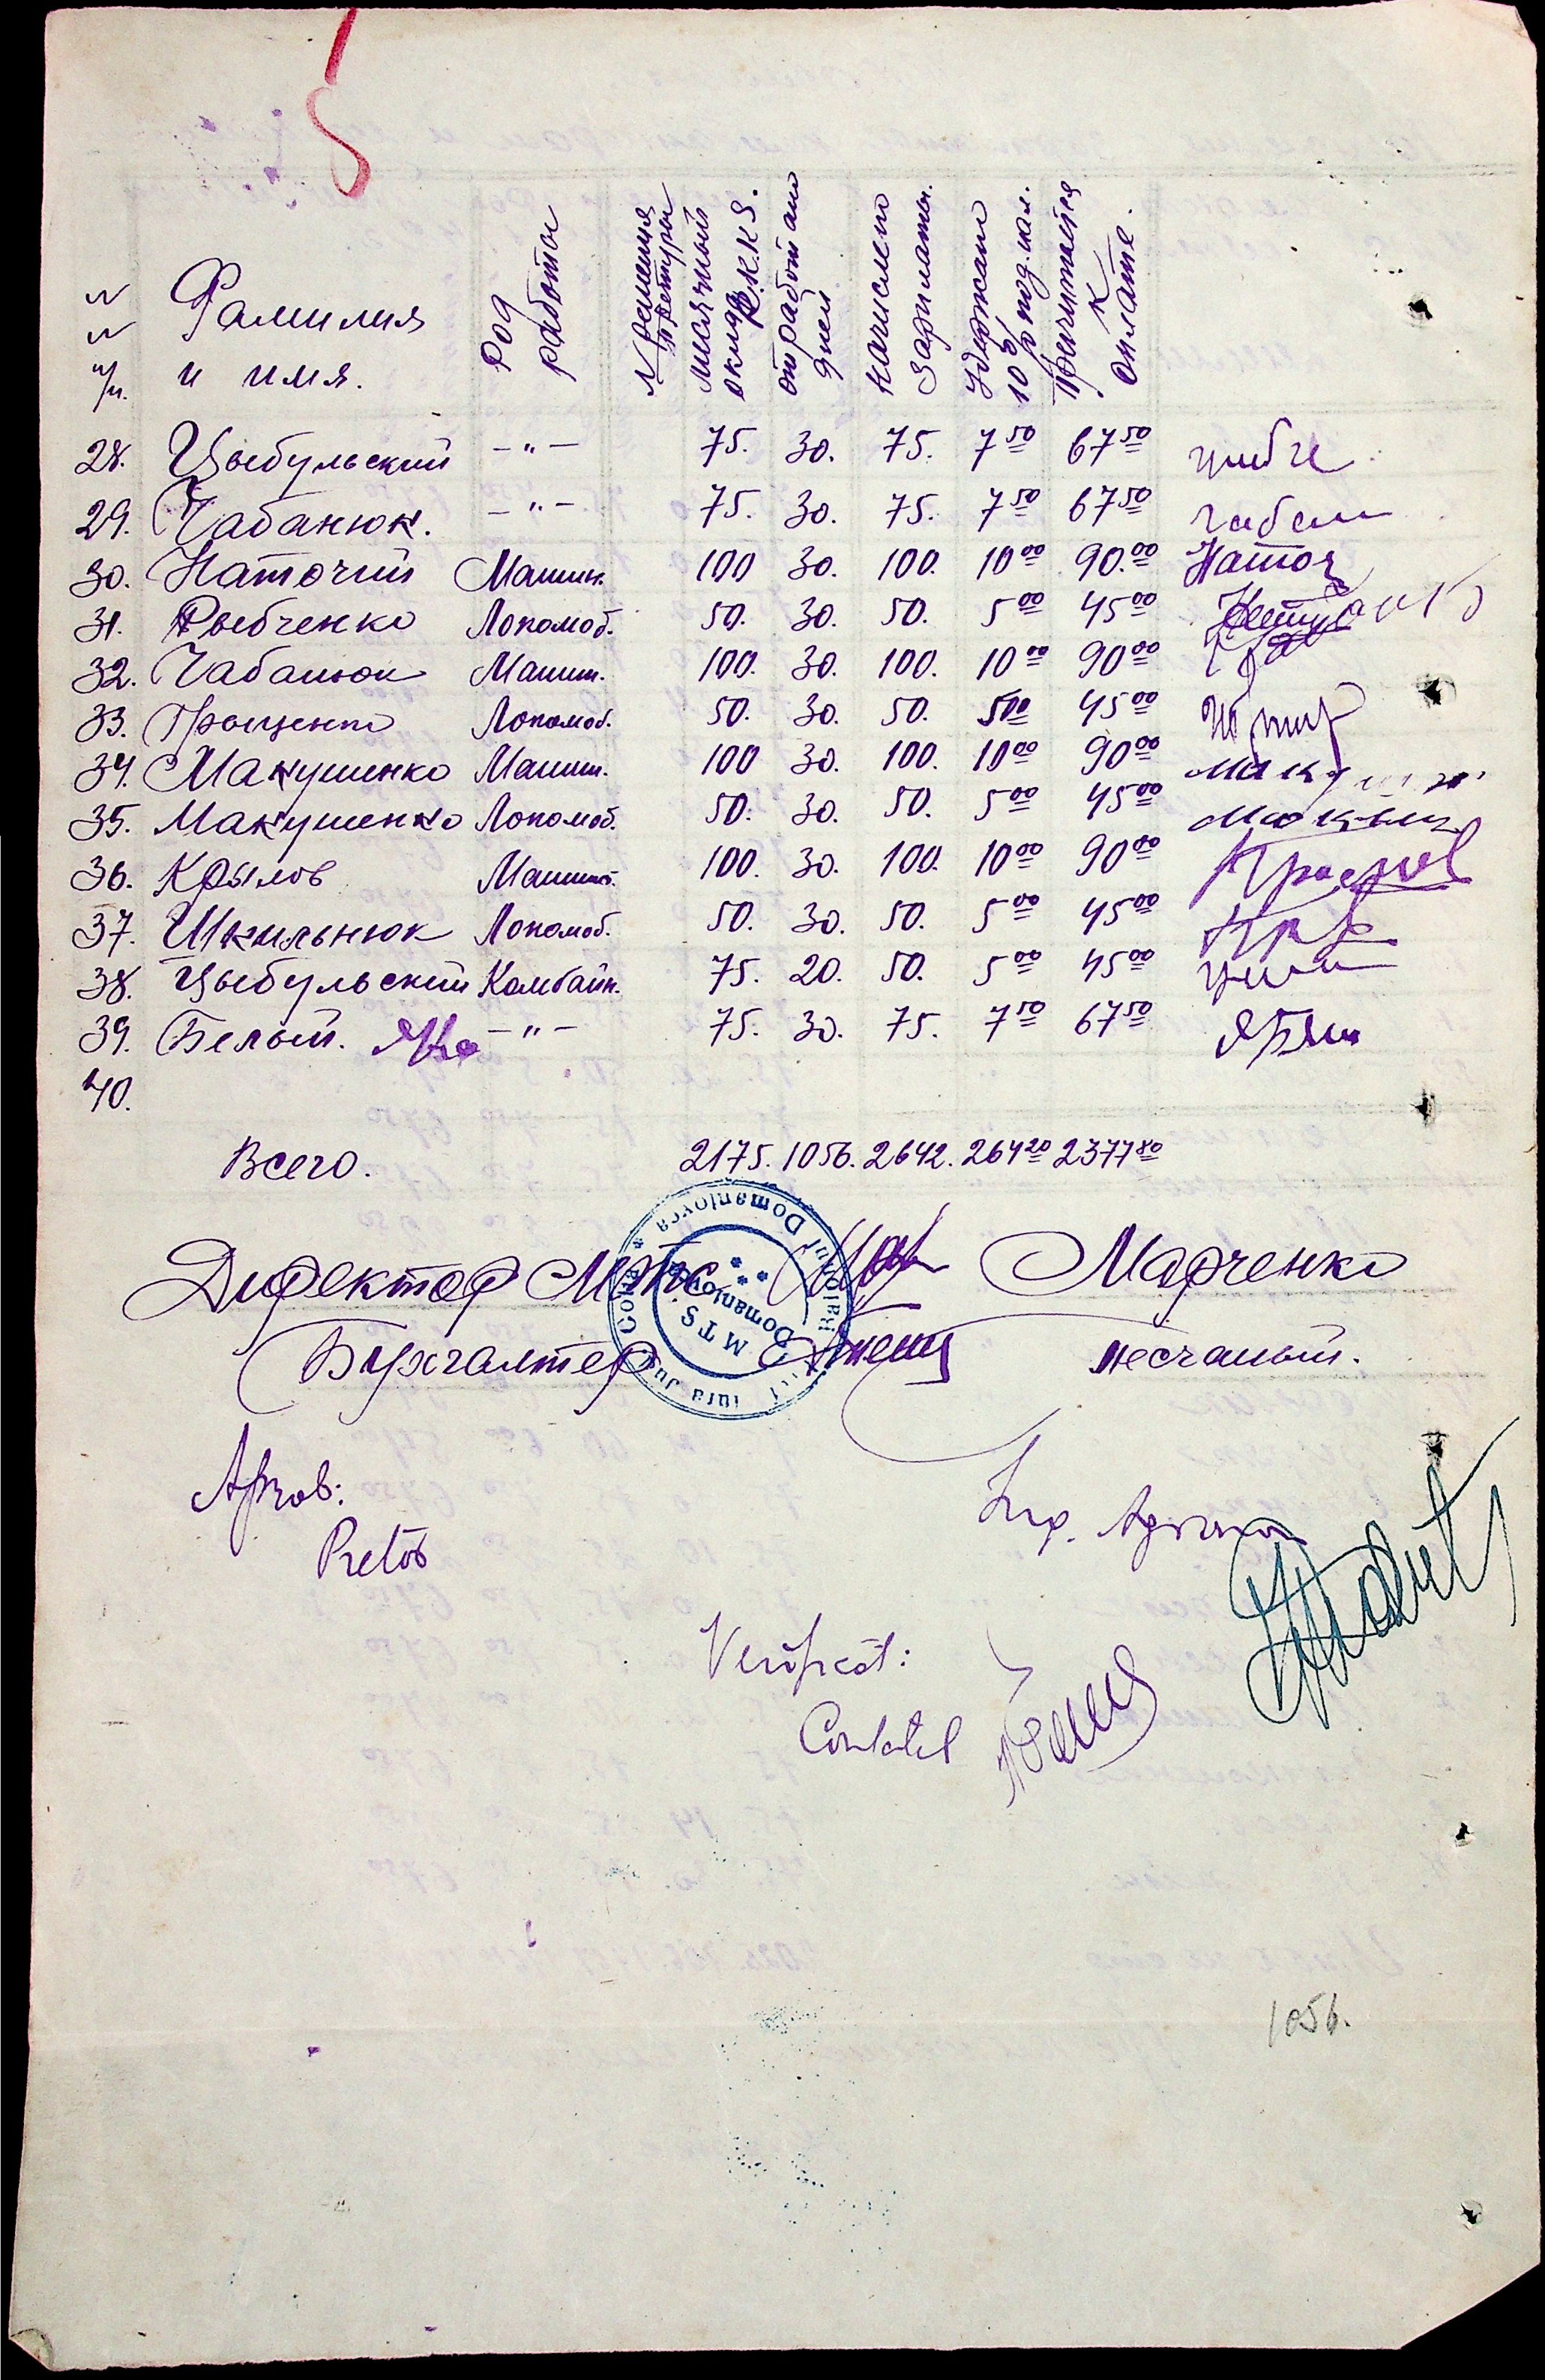 5
N N п/п. Фамилия и имя. Род работы N решения претуры месячный оклад R.K.K.S. отработано дней начислено зарплаты. Удержано 10% под.нал. Причитается к оплате.
28. Цыбульский —"— 75. 30. 75. 7 50 67 50
29. Чабанюк. —"— 75. 30. 75. 7 50 67 50 Чабан
30. Наточий Машин. 100 30. 100. 10 00 90. 00 Наточ
31. Рыбченко Локомоб. 50. 30. 50. 5 00 45 00
32. Чабанюк Машин. 100. 30. 100. 10 00 90 00
33. Гроценко Локомоб. 50. 30. 50. 5 00 45 00
34. Макушенко Машин. 100 30. 100. 10 00 90 00
35. Макушенко Локомоб. 50. 30. 50. 5 00 45 00
36. Крылов Машинс. 100. 30. 100. 10 00 90 00
37. Шкильнюк Локомоб. 50. 30. 50. 5 00 45 00
38. Цыбульский Комбайн. 75. 20. 50. 5 00 45 00
39. Белый. —"— 75. 30. 75. 7 50 67 50
40.
Всего. 2175. 1056. 2642. 264 20 2377 80
Директор МТС Марченко
Бухгалтер Песчаный.
M T S. Domaniovca
Raionul Domaniovca * Jud. Golta *
Aprob:
Pretor
Ing. Agronom
Verificat:
Contabil
1056.